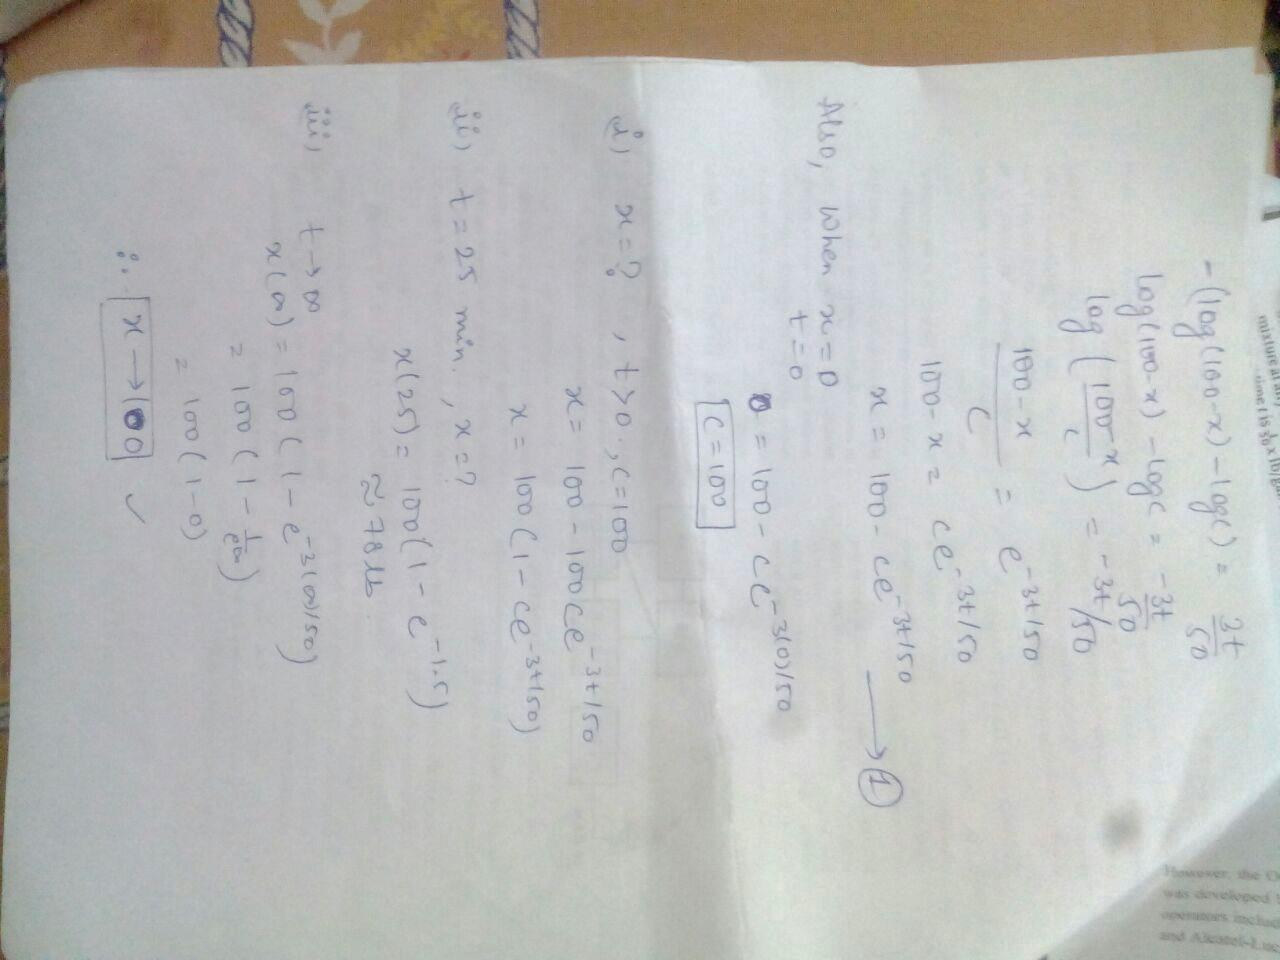 -(log(100-x) - log c) = 3t/50
log(100-x) - log c = -3t/50
log (100-x/c) = -3t/50
100-x/c = e^-3t/50
100-x = ce^-3t/50
x = 100 - ce^-3t/50 → (1)
Also, when x=0
t=0
0 = 100 - ce^-3(0)/50
c=100
i) x=? , t>0 , c=100
x = 100 - 100ce^-3t/50
x = 100(1 - ce^-3t/50)
ii) t=25 min. , x=?
x(25) = 100(1 - e^-1.5)
≈ 78 lb
iii) t→∞
x(∞) = 100(1 - e^-3(∞)/50)
= 100(1 - 1/e^∞)
= 100(1-0)
∴ x→100 ✓
mixture at
time t is 50 x lb/gal
However, the O
was developed
operators includ
and Alcatel-Luc